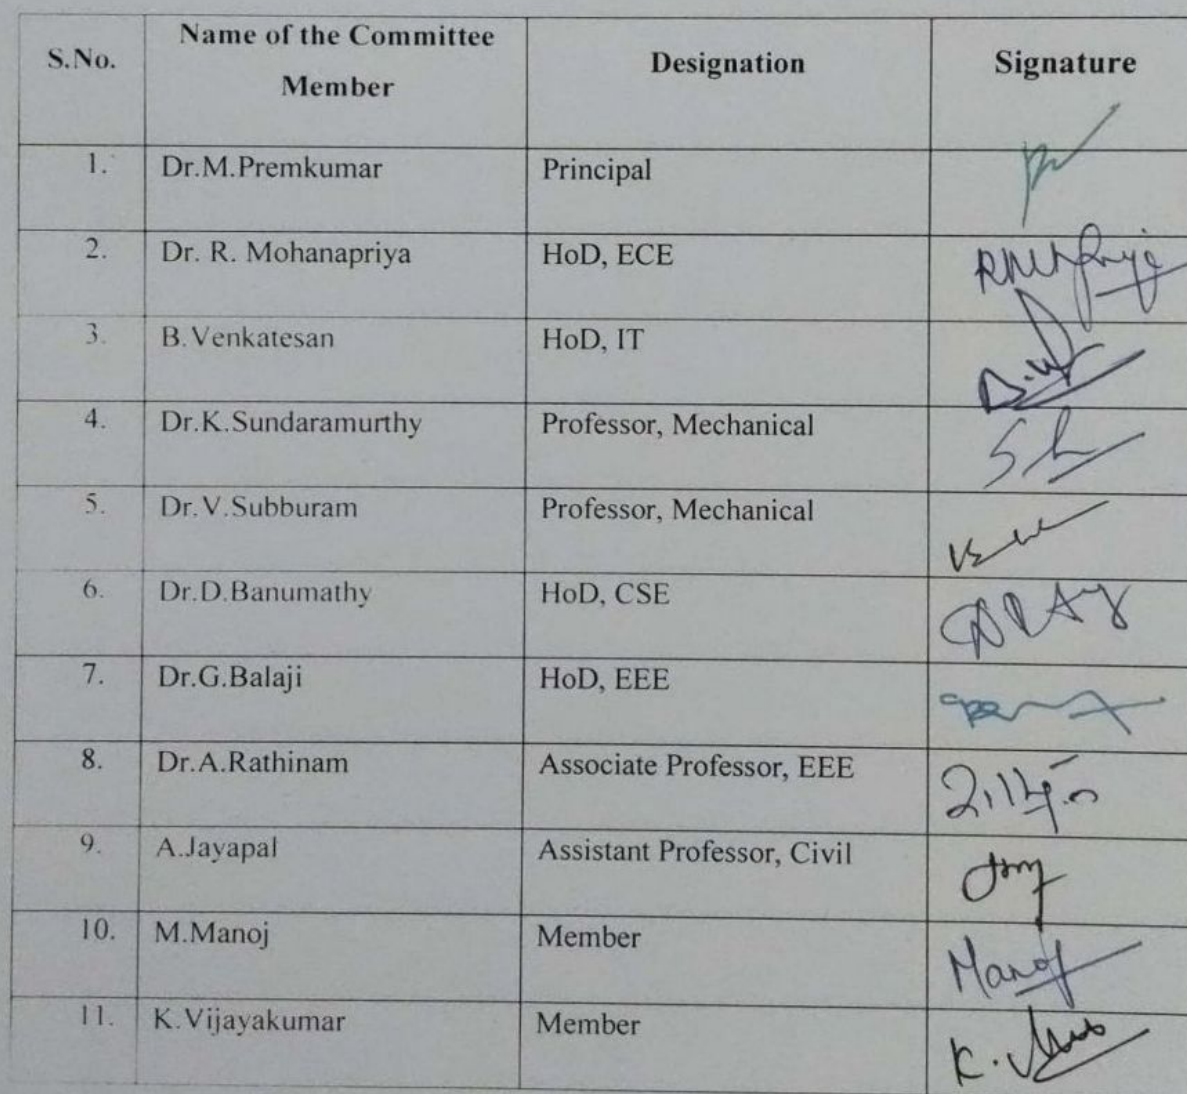 S.No.
Name of the Committee
Member
Designation
Signature
1. Dr.M.Premkumar Principal
2. Dr. R. Mohanapriya HoD, ECE
3. B.Venkatesan HoD, IT
4. Dr.K.Sundaramurthy Professor, Mechanical
5. Dr.V.Subburam Professor, Mechanical
6. Dr.D.Banumathy HoD, CSE
7. Dr.G.Balaji HoD, EEE
8. Dr.A.Rathinam Associate Professor, EEE
9. A.Jayapal Assistant Professor, Civil
10. M.Manoj Member Manoj
11. K.Vijayakumar Member